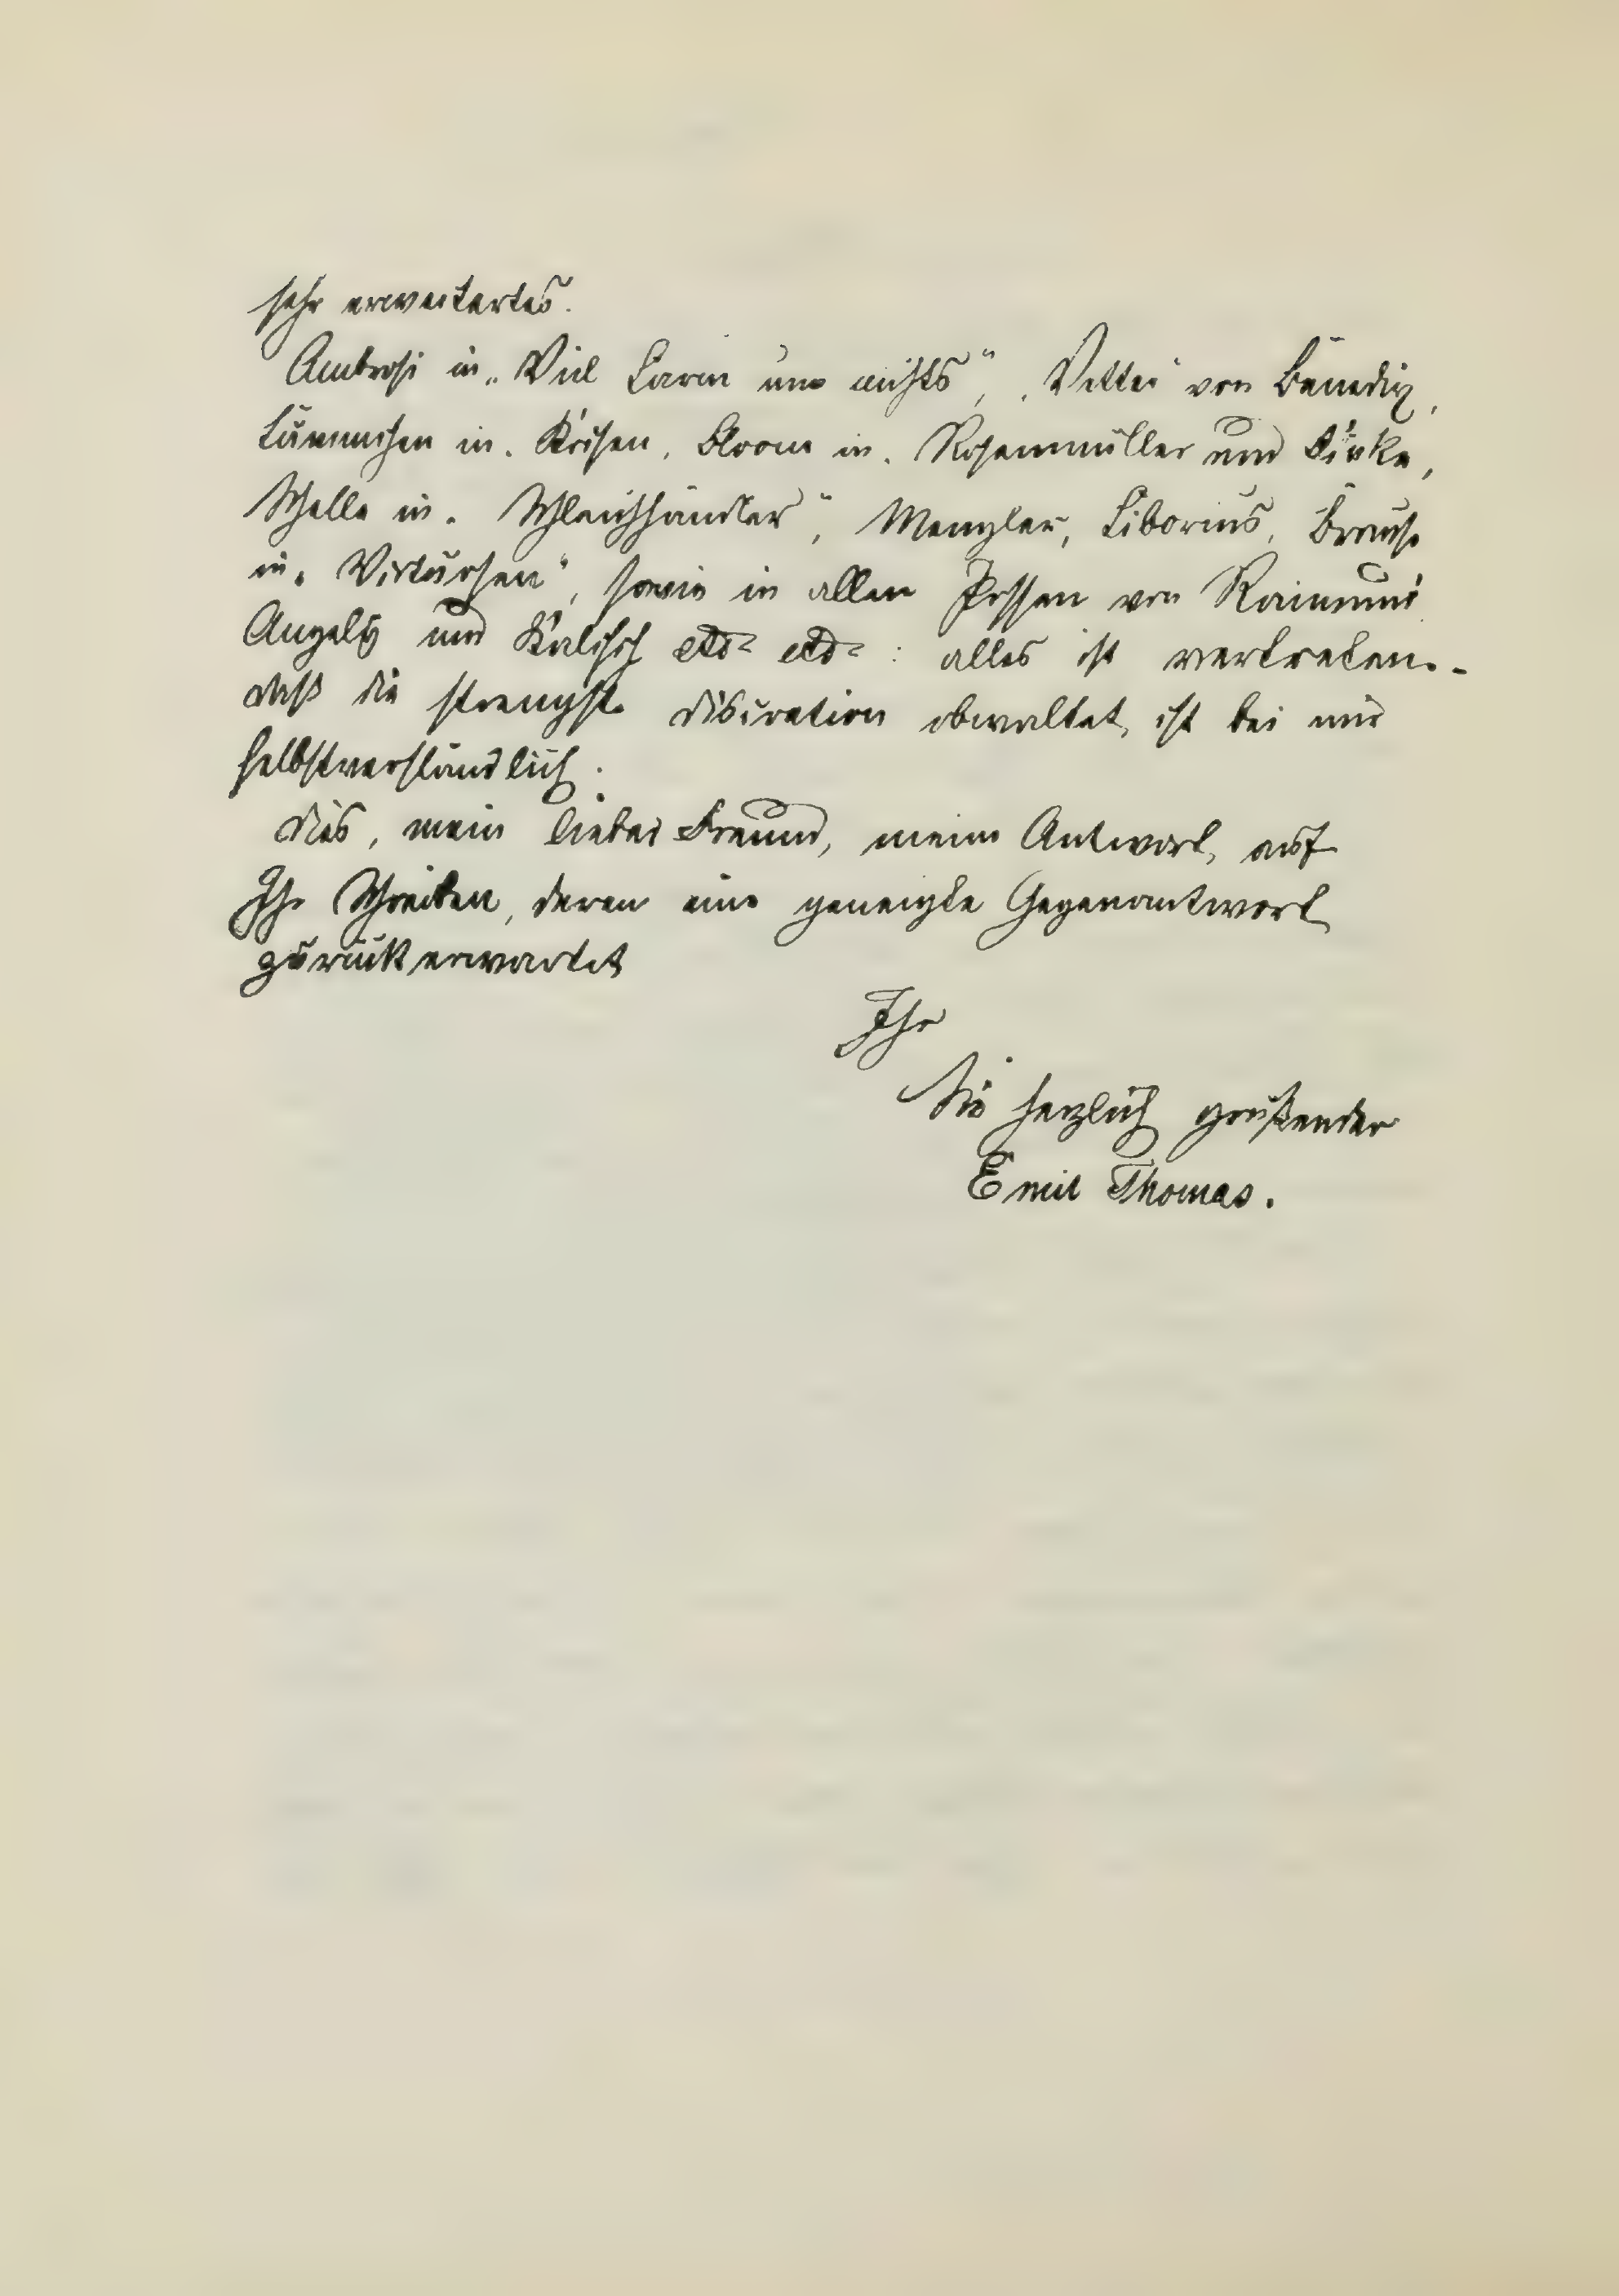 sehr erweitertes.
Ambrosi in „Viel Lärm um nichts“, „Vetter“ von Benedix,
Lämmchen in „Krisen, Bloom in „Rosenmüller und Finke,
Schelle in „Schleichhändler“, Menzler, Liborius, Brause
in „Vorlesen“, sowie in allen Possen von Raimund
Angely und Kalisch etc etc: alles ist vertreten. -
daß die strengste Discretion obwaltet, ist bei mir
selbstverständlich.
Dies, mein lieber Freund, meine Antwort, auf
Ihr Schreiben, deren eine geneigte Gegenantwort
zurückerwartet
Ihr
Sie herzlich grüßender
Emil Thomas.